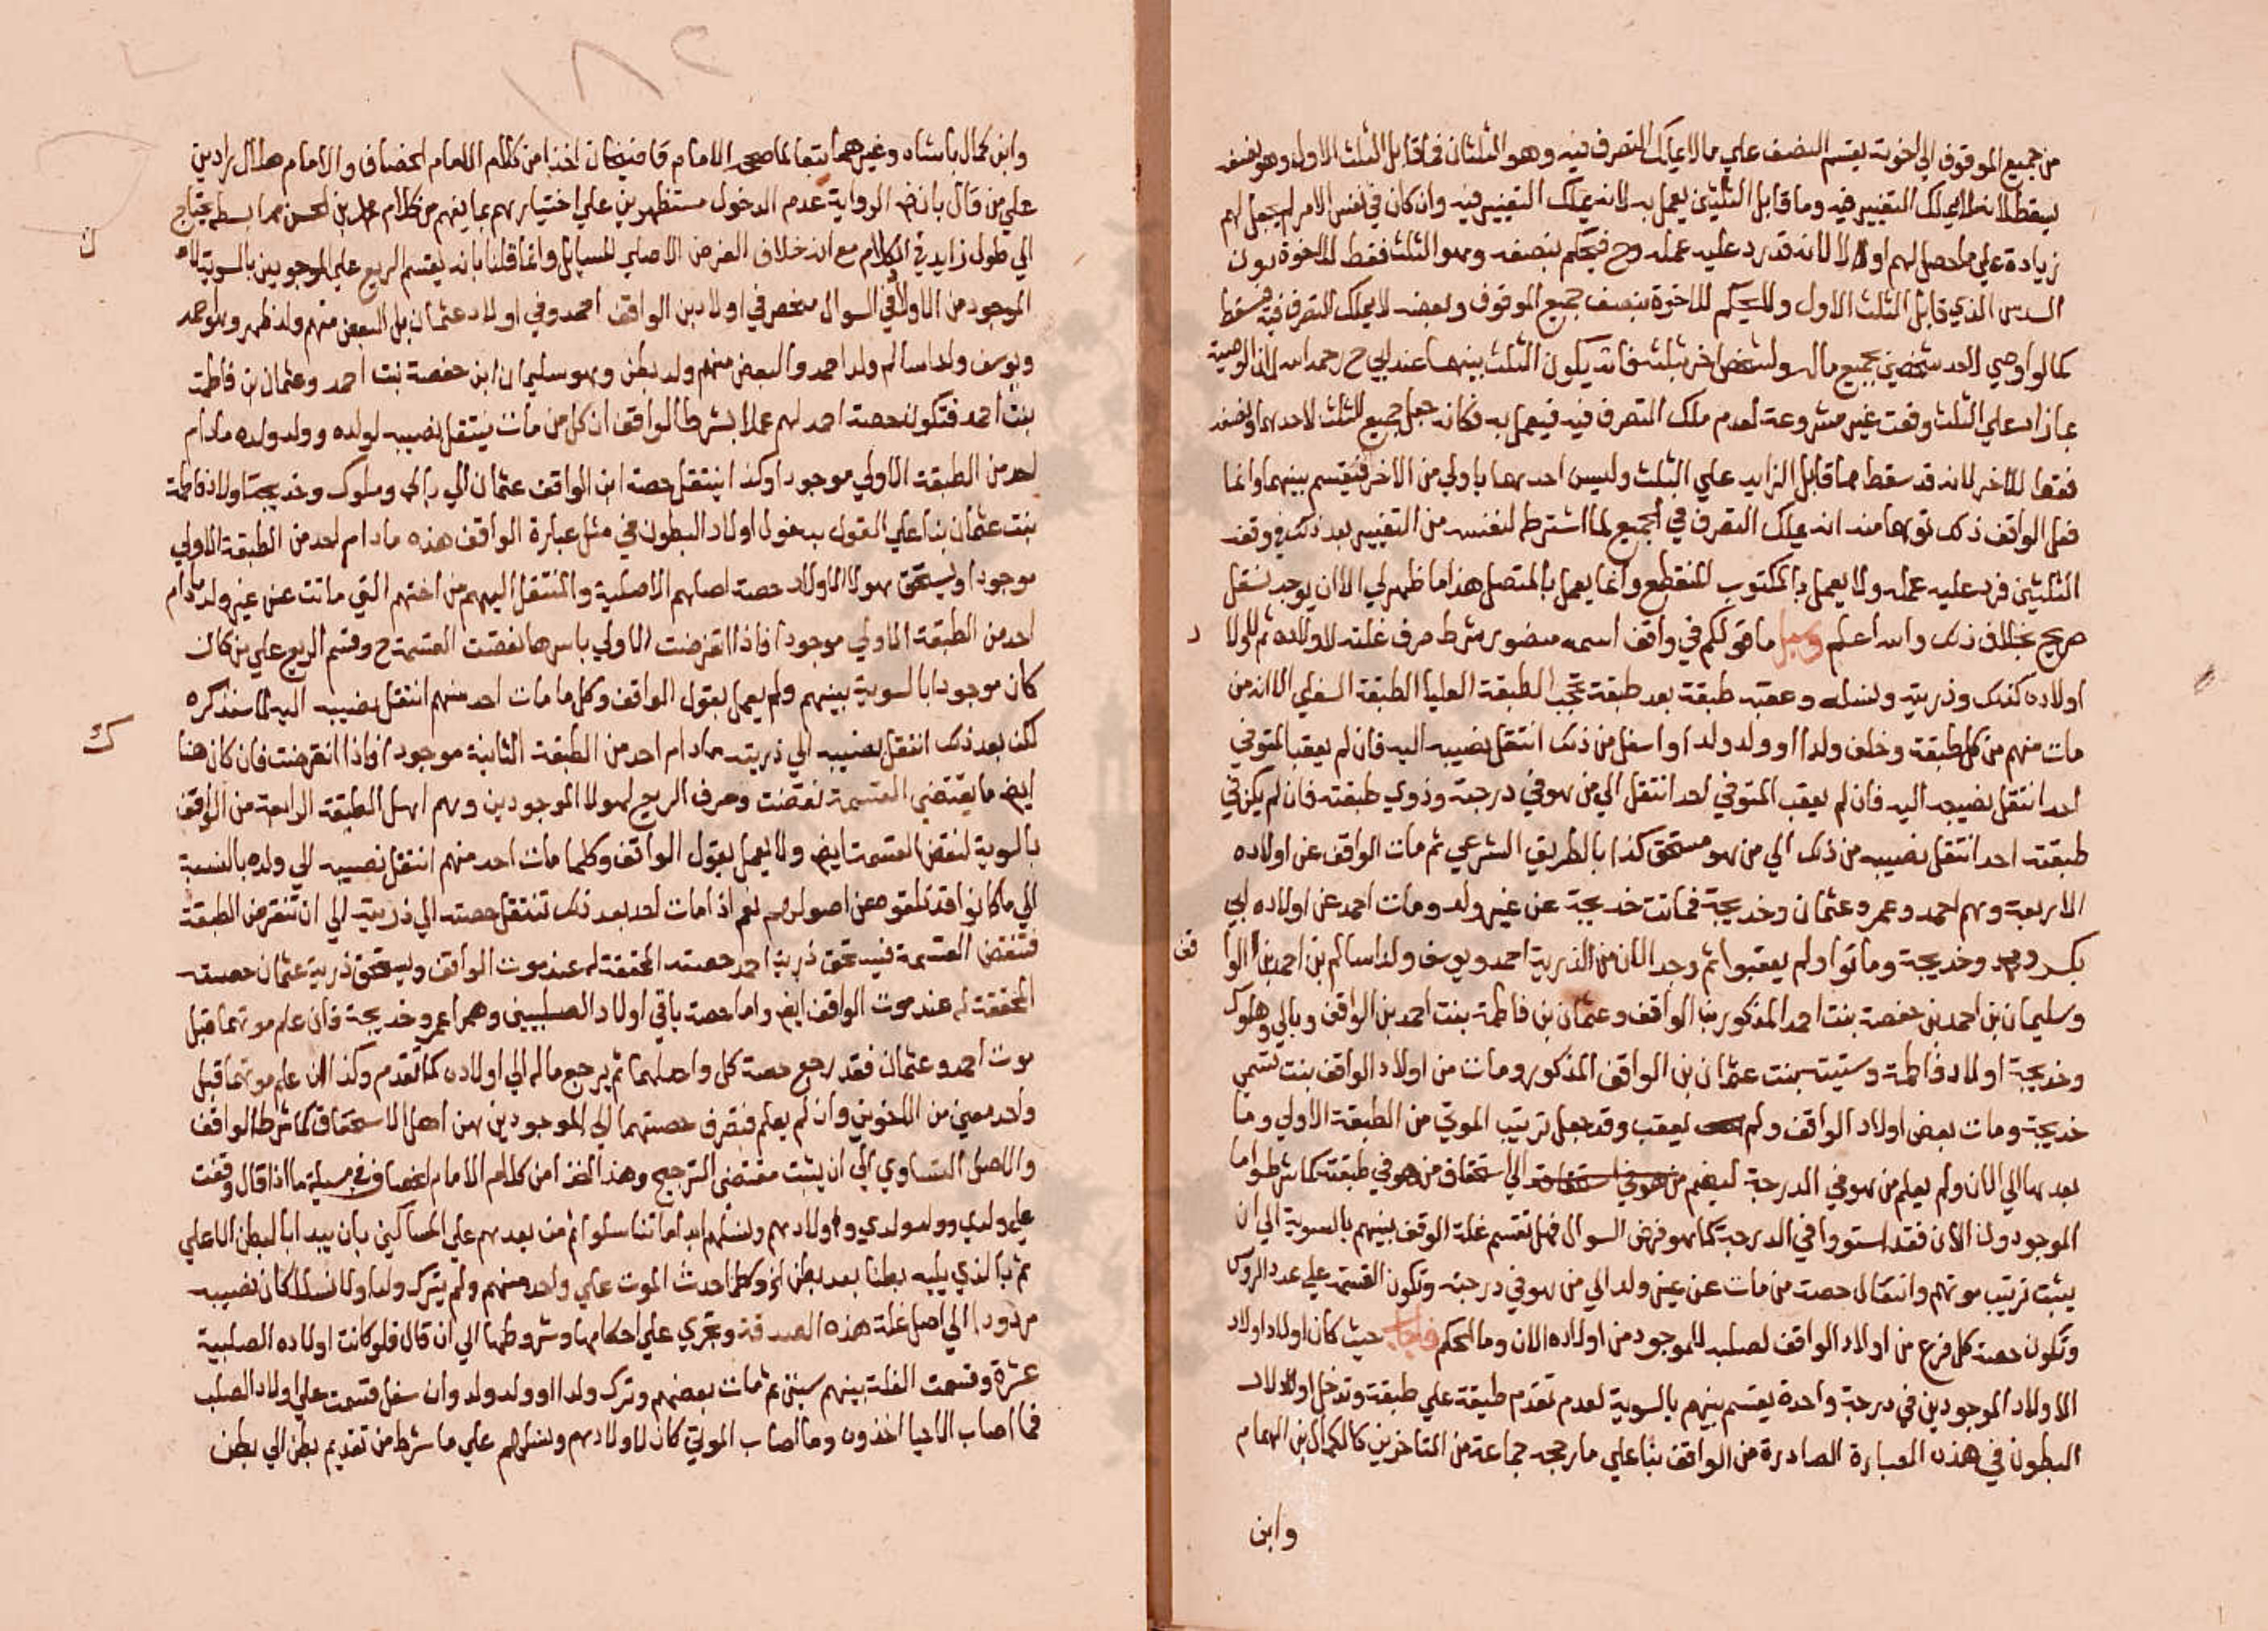 من جميع الموقوف الي اخوته يقسم النصف علي مالا يملك التصرف فيه وهو الثلثان فما قابل الثلث الاول وهو نصفه
يسقط لانه لا يملك التغيير فيه وما قابل الثلثين يعمل به لانه يملك التغيير فيه وان كان في نفس الامر لم يجعل لهم
زيادة علي ما حصل لهم اولا لانه قد رد عليه عمله وح فيحكم بنصفه وهو الثلث فقط للاخوة دون
السدس الذي قابل الثلث الاول ولا يحكم للاخوة بنصف جميع الموقوف وبعضه لا يملك التصرف فيه فسقط
كما لو اوصي لاحد شخصين بجميع ماله ولشخص اخر بثلثه فانه يكون الثلث بينهما عند ابي ح رحمه الله لان الوصية
بما زاد علي الثلث وقعت غير مشروعة لعدم ملك التصرف فيه فيعمل به فكانه جعل جميع الثلث لاحدهما ونصفه
فقط للاخر لانه قد سقط ما قابل الزايد علي الثلث وليس احدهما باولي من الاخر فيقسم بينهما وانما
فعل الواقف ذلك توهما منه انه يملك التصرف في الجميع لما اشترط لنفسه من التغيير بعد ذلك في وقف
الثلثين فرد عليه عمله ولا يعمل بالمكتوب المنقطع وانما يعمل بالمتصل هذا ما ظهر لي الا ان يوجد نقل
صريح بخلاف ذلك والله اعلم وسيل ما قولكم في واقف اسمه منصور شرط صرف غلته لاولاده ثم لاولاد
اولاده كذلك وذريته ونسله وعقبه طبقة بعد طبقة تحجب الطبقة العليا الطبقة السفلي الا انه من
مات منهم من كل طبقة وخلف ولدا او ولد ولد او اسفل من ذلك انتقل نصيبه اليه فان لم يعقب المتوفي
احد انتقل نصيبه اليه فان لم يعقب المتوفي احد انتقل الي من هو في درجته وذوي طبقته فان لم يكن في
طبقته احد انتقل نصيبه من ذلك الي من هو مستحق كذا بالطريق الشرعي ثم مات الواقف عن اولاده
الاربعة وهم احمد وعمر وعثمان وخديجة فماتت خديجة عن غير ولد ومات احمد عن اولاده ابي
بكر وخديجة وماتوا ولم يعقبوا ثم وجد الان من الذرية احمد ويوسف ولدا سالم بن احمد بن الوا
قف
وسليمان بن احمد بن حفصة بنت احمد المذكور بن الواقف وعثمان بن فاطمة بنت احمد بن الواقف وبالي وملوك
وخديجة اولاد فاطمة وستيتة بنت عثمان بن الواقف المذكور ومات من اولاد الواقف بنت تسمي
خديجة ومات بعض اولاد الواقف ولم يعقب وقد جعل ترتيب الموتي من الطبقة الاولي وما
بعدها الي الان ولم يعلم من هو في الدرجة ليضم من الي استحقاق من هو في طبقته كما شرطوا ما
الموجودون الان فقد استووا في الدرجة كما هو فرض السوال فهل تقسم غلة الوقف بينهم بالسوية الي ان
يثبت ترتيب موتهم وانتقال حصة من مات عن غير ولد الي من هو في درجته وتكون القسمة علي عدد الروس
وتكون حصة كل فرع من اولاد الواقف لصلبه للموجود من اولاده الان وما الحكم فاجاب حيث كان اولاد اولاد
الاولاد الموجودين في درجة واحدة يقسم بينهم بالسوية لعدم تقدم طبقة علي طبقة وتدخل اولاد
البطون في هذه العبارة الصادرة من الواقف بنا علي ما رجحه جماعة من المتاخرين كالكمال بن الهمام
وابن
١٨٢
وابن كمال باشاه وغيرهما تبعا لما صححه الامام قاضيخان اخذا من كلام الامام الخصاف والامام هلال رادين
علي من قال بان ض الرواية عدم الدخول مستظهرين علي اختيارهم بما يفهم من كلام محمد بن الحسن مما بسطه يحتاج
الي طول زايد في الكلام مع انه خلاف الغرض الاصلي للسايل وانما قلنا بانه يقسم الريع علي الموجودين بالسوية لان
الموجود من الاولاد في السوال منحصر في اولاد بن الواقف احمد وفي اولاد عثمان بل البعض منهم ولد ظهر وهو احمد
ويوسف ولدا سالم ولد احمد والبعض منهم ولد بطن وهو سليمان ابن حفصة بنت احمد وعثمان بن فاطمة
بنت احمد فتكون حصة احمد لهم عملا بشرط الواقف ان كل من مات ينتقل نصيبه لولده وولد ولده مادام
احد من الطبقة الاولي موجودا وكذا ينتقل حصة ابن الواقف عثمان الي بالي وملوك وخديجة اولاد فاطمة
بنت عثمان بنا علي القول بدخول اولاد البطون في مثل عبارة الواقف هذه مادام احد من الطبقة الاولي
موجودا ويستحق هولا الاولاد حصة اصلهم الاصلية والمنتقل اليهم من اختهم التي ماتت عن غير ولد مادام
احد من الطبقة الاولي موجودا فاذا انقرضت الاولي باسرها نقضت القسمة ح وقسم الريع علي من كان
كان موجودا بالسوية بينهم ولم يعمل بقول الواقف وكل ما مات احد منهم انتقل نصيبه اليه لما سنذكره
لكن بعد ذلك انتقل نصيبه الي ذريته مادام احد من الطبقة الثانية موجودا فاذا انقرضت فان كان هنا
ك
ايض ما يقتضي القسمة نقضت وصرف الريع لهولا الموجودين وهم اهل الطبقة الرابعة من الواقف
بالسوية لنقض القسمة ايض ولا يعمل بقول الواقف وكلما مات احد منهم انتقل نصيبه الي ولده بالنسبة
الي ما كانوا قد تلقوه عن اصولهم نعم اذا مات احد بعد ذلك تنتقل حصته الي ذريته الي ان تنقرض الطبقة
فتنقض القسمة فيستحق ذرية احمد حصته المحققة له عند موت الواقف ويستحق ذرية عثمان حصته
المحققة له عند موت الواقف ايض واما حصة باقي اولاد الصلبيين وهما عمر وخديجة فان علم موتهما قبل
موت احمد وعثمان فقد رجع حصة كل واحد لهما ثم يرجع ماله الي اولاده كما تقدم وكذا ان علم موتهما قبل
واحد معين من الاخوين وان لم يعلم فتصرف حصتهما الي الموجودين من اهل الاستحقاق كما شرط الواقف
والاصل التساوي الي ان يثبت مقتضي الترجيح وهذا اخذا من كلام الامام الخصاف في مسيلة ما اذا قال وقفت
علي ولدي وولد ولدي واولادهم ونسلهم ابدا ما تناسلوا ثم من بعدهم علي المساكين بان يبدا بالبطن الاعلي
ثم بالذي يليه بطنا بعد بطن الخ وكلما حدث الموت علي واحد منهم ولم يترك ولدا ولا نسلا كان نصيبه
مردودا الي اصل غلة هذه الصدقة وتجري علي احكامها وشروطها الي ان قال فلو كانت اولاده الصلبية
عشرة وقسمت الغلة بينهم سنين ثم مات بعضهم وترك ولدا او ولد ولد وان سفل قسمت علي اولاد الصلب
فما اصاب الاحيا اخذوه وما اصاب الموتي كان لاولادهم ونسلهم علي ما شرط من تقديم بطن الي بطن